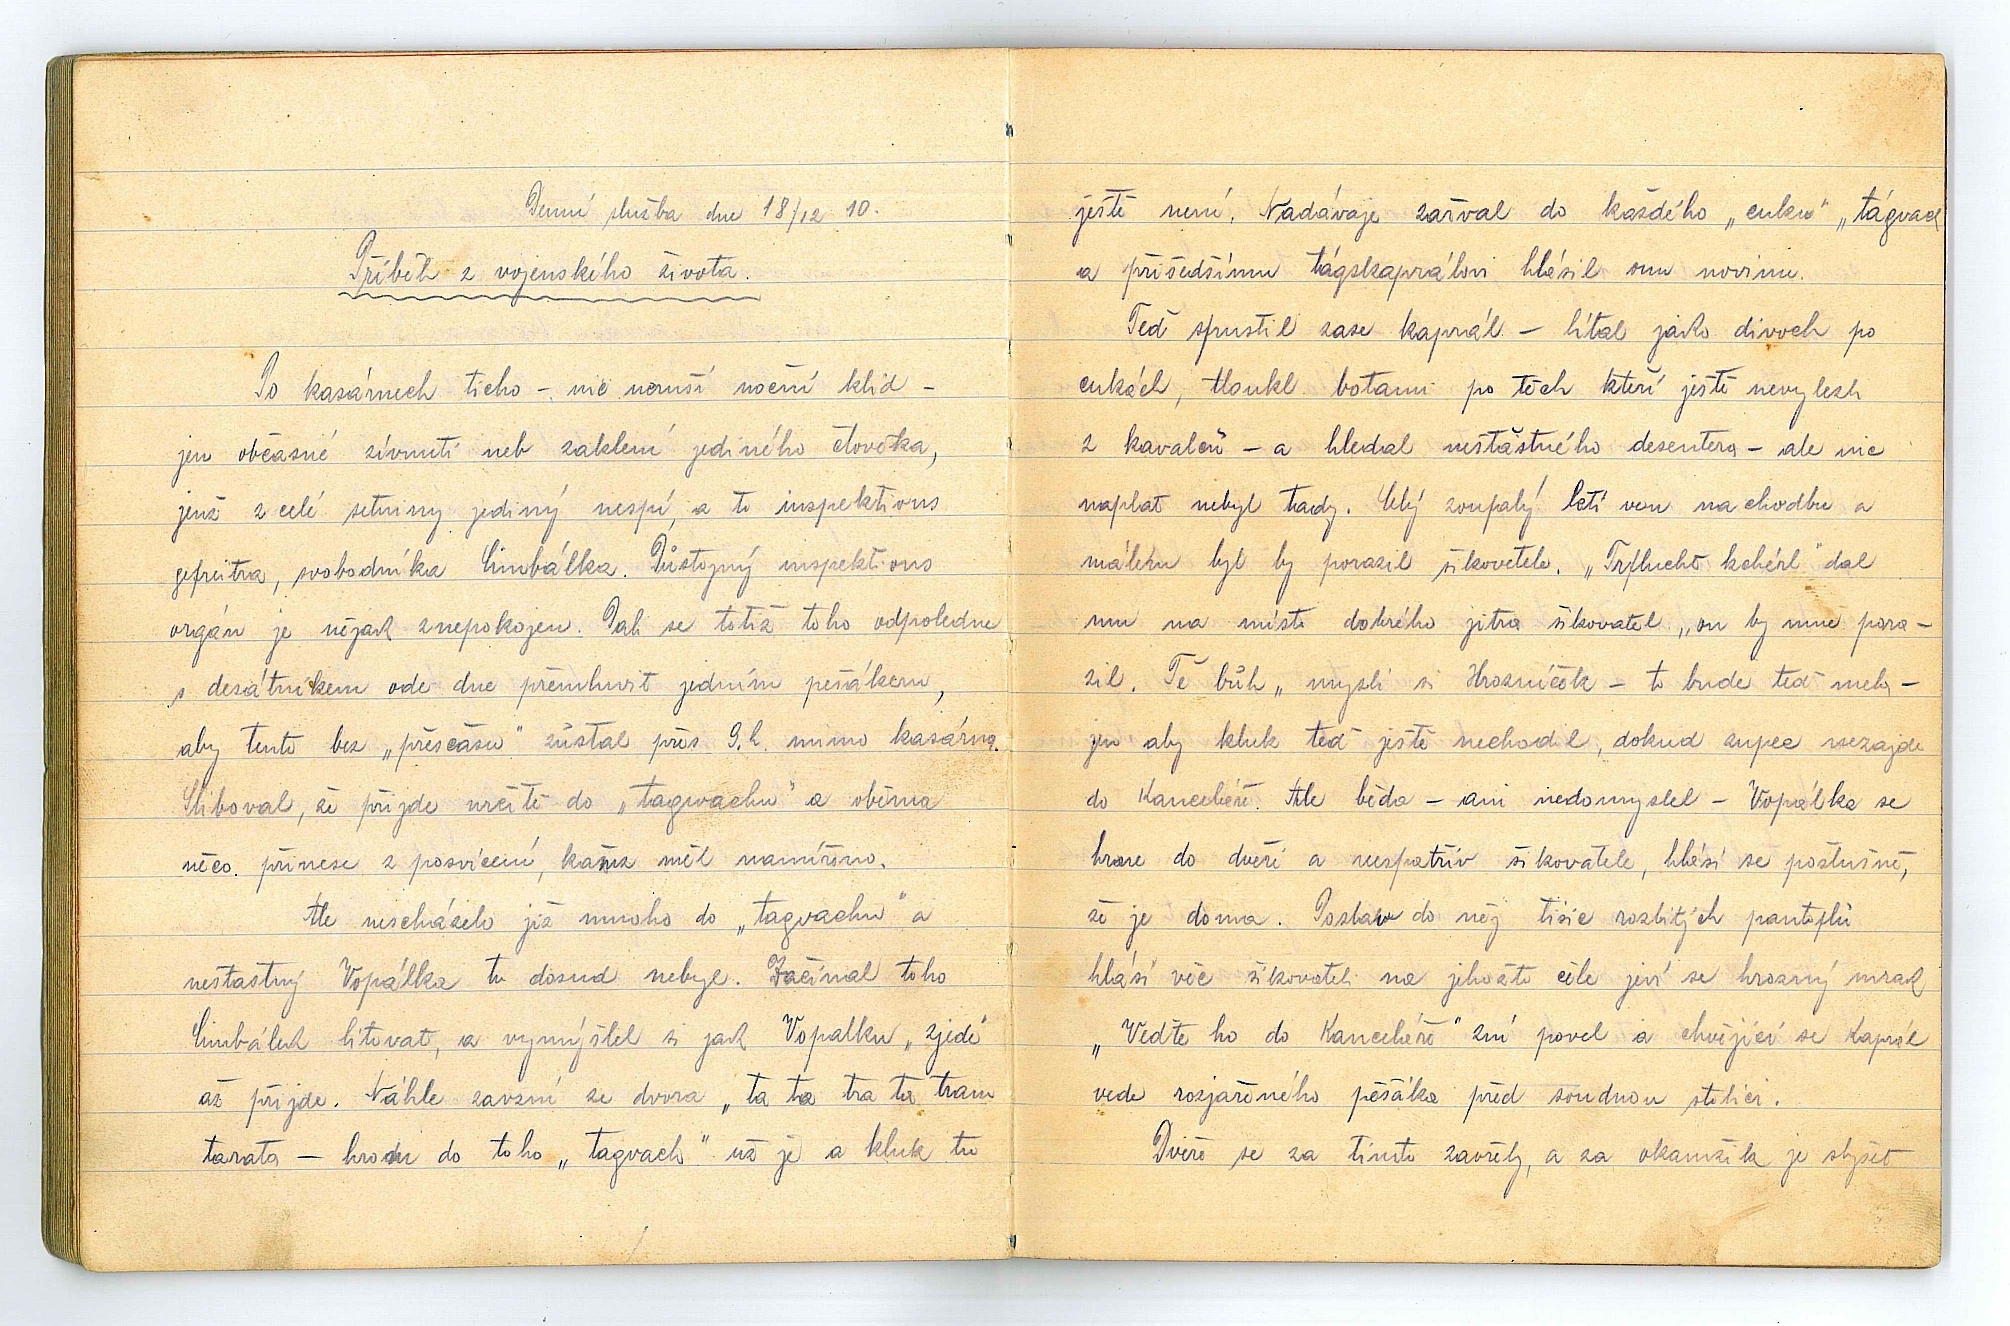 Denní služba dne 18/12 10.
Příběh z vojenského života.
Po kasárnech ticho – nic neruší noční klid –
jen občasné zívnutí neb zaklení jediného človéka,
jenž z celé setniny jediný nespí, a to inspektions
gefreitra, svobodníka Cimbálka. Důstojný inspektions
orgán je nějak znepokojen. Dali se totiž toho odpoledne
s desátníkem ode dne přemluvit jedním pěšákem,
aby tento bez „přesčasu" zůstal přes 9.h. mimo kasárna.
Sliboval, že přijde určitě do „tagwachu" a oběma
něco přinese z posvícení, kamž měl namířeno.
Ale nescházelo již mnoho do „tagvachu" a
nešťastný Vopálka tu dosud nebyl. Začínal toho
Cimbálek litovat, a vymýšlel si jak Vopalku „zjede"
až přijde. Náhle zavzní ze dvora „ta ta tra ta tram
tarata – hrom do toho „tagvach" už je a kluk tu
ještě není. Nadávaje zařval do každého „cuku" „tágvach
a přišedšímu tágskaprálovi hlásil onu novinu.
Teď spustil zase kaprál – lítal jako divoch po
cukách, tloukl botami po těch kteří ještě nevylezli
z kavalců – a hledal nešťastného desentera – ale nic
naplat nebyl tady. Celý zoupalý letí ven na chodbu a
málem byl by porazil šikovatele. „Trflucht kehérl" dal
mu na místo dobrého jitra šikovatel „on by mně pora–
zil. Tě bůh „ myslí si Hrozníčok – to bude teď mela –
jen aby kluk teď ještě nechodil, dokud zupec nezajde
do Kanceléře. Ale běda – ani nedomyslel – Vopálka se
hrne do dveří a nespatřiv šikovatele, hlásí se poslušně,
že je doma. Poslaw do něj tisíc rozbitých pantoflů
hlásí věc šikovateli na jehožto čele jeví se hrozný mrak
„Veďte ho do Kanceléře" zní povel a chvějící se kaprál
vede rozjařeného pěšáka před soudnou stolici.
Dvéře se za tímto zavřely, a za okamžik je slyšet